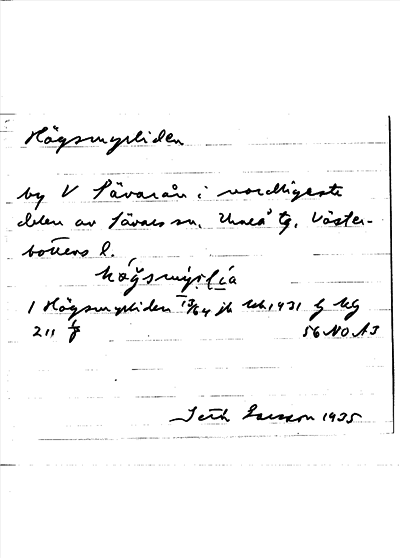 Högsmyrliden
by V Sävarån i nordligaste
delen av Sävars sn, Umeå tg, Väster-
bottens l.
1 Högsmyrliden 13/64 jb 1931
211 56 NO A3
Seth Larsson 1935